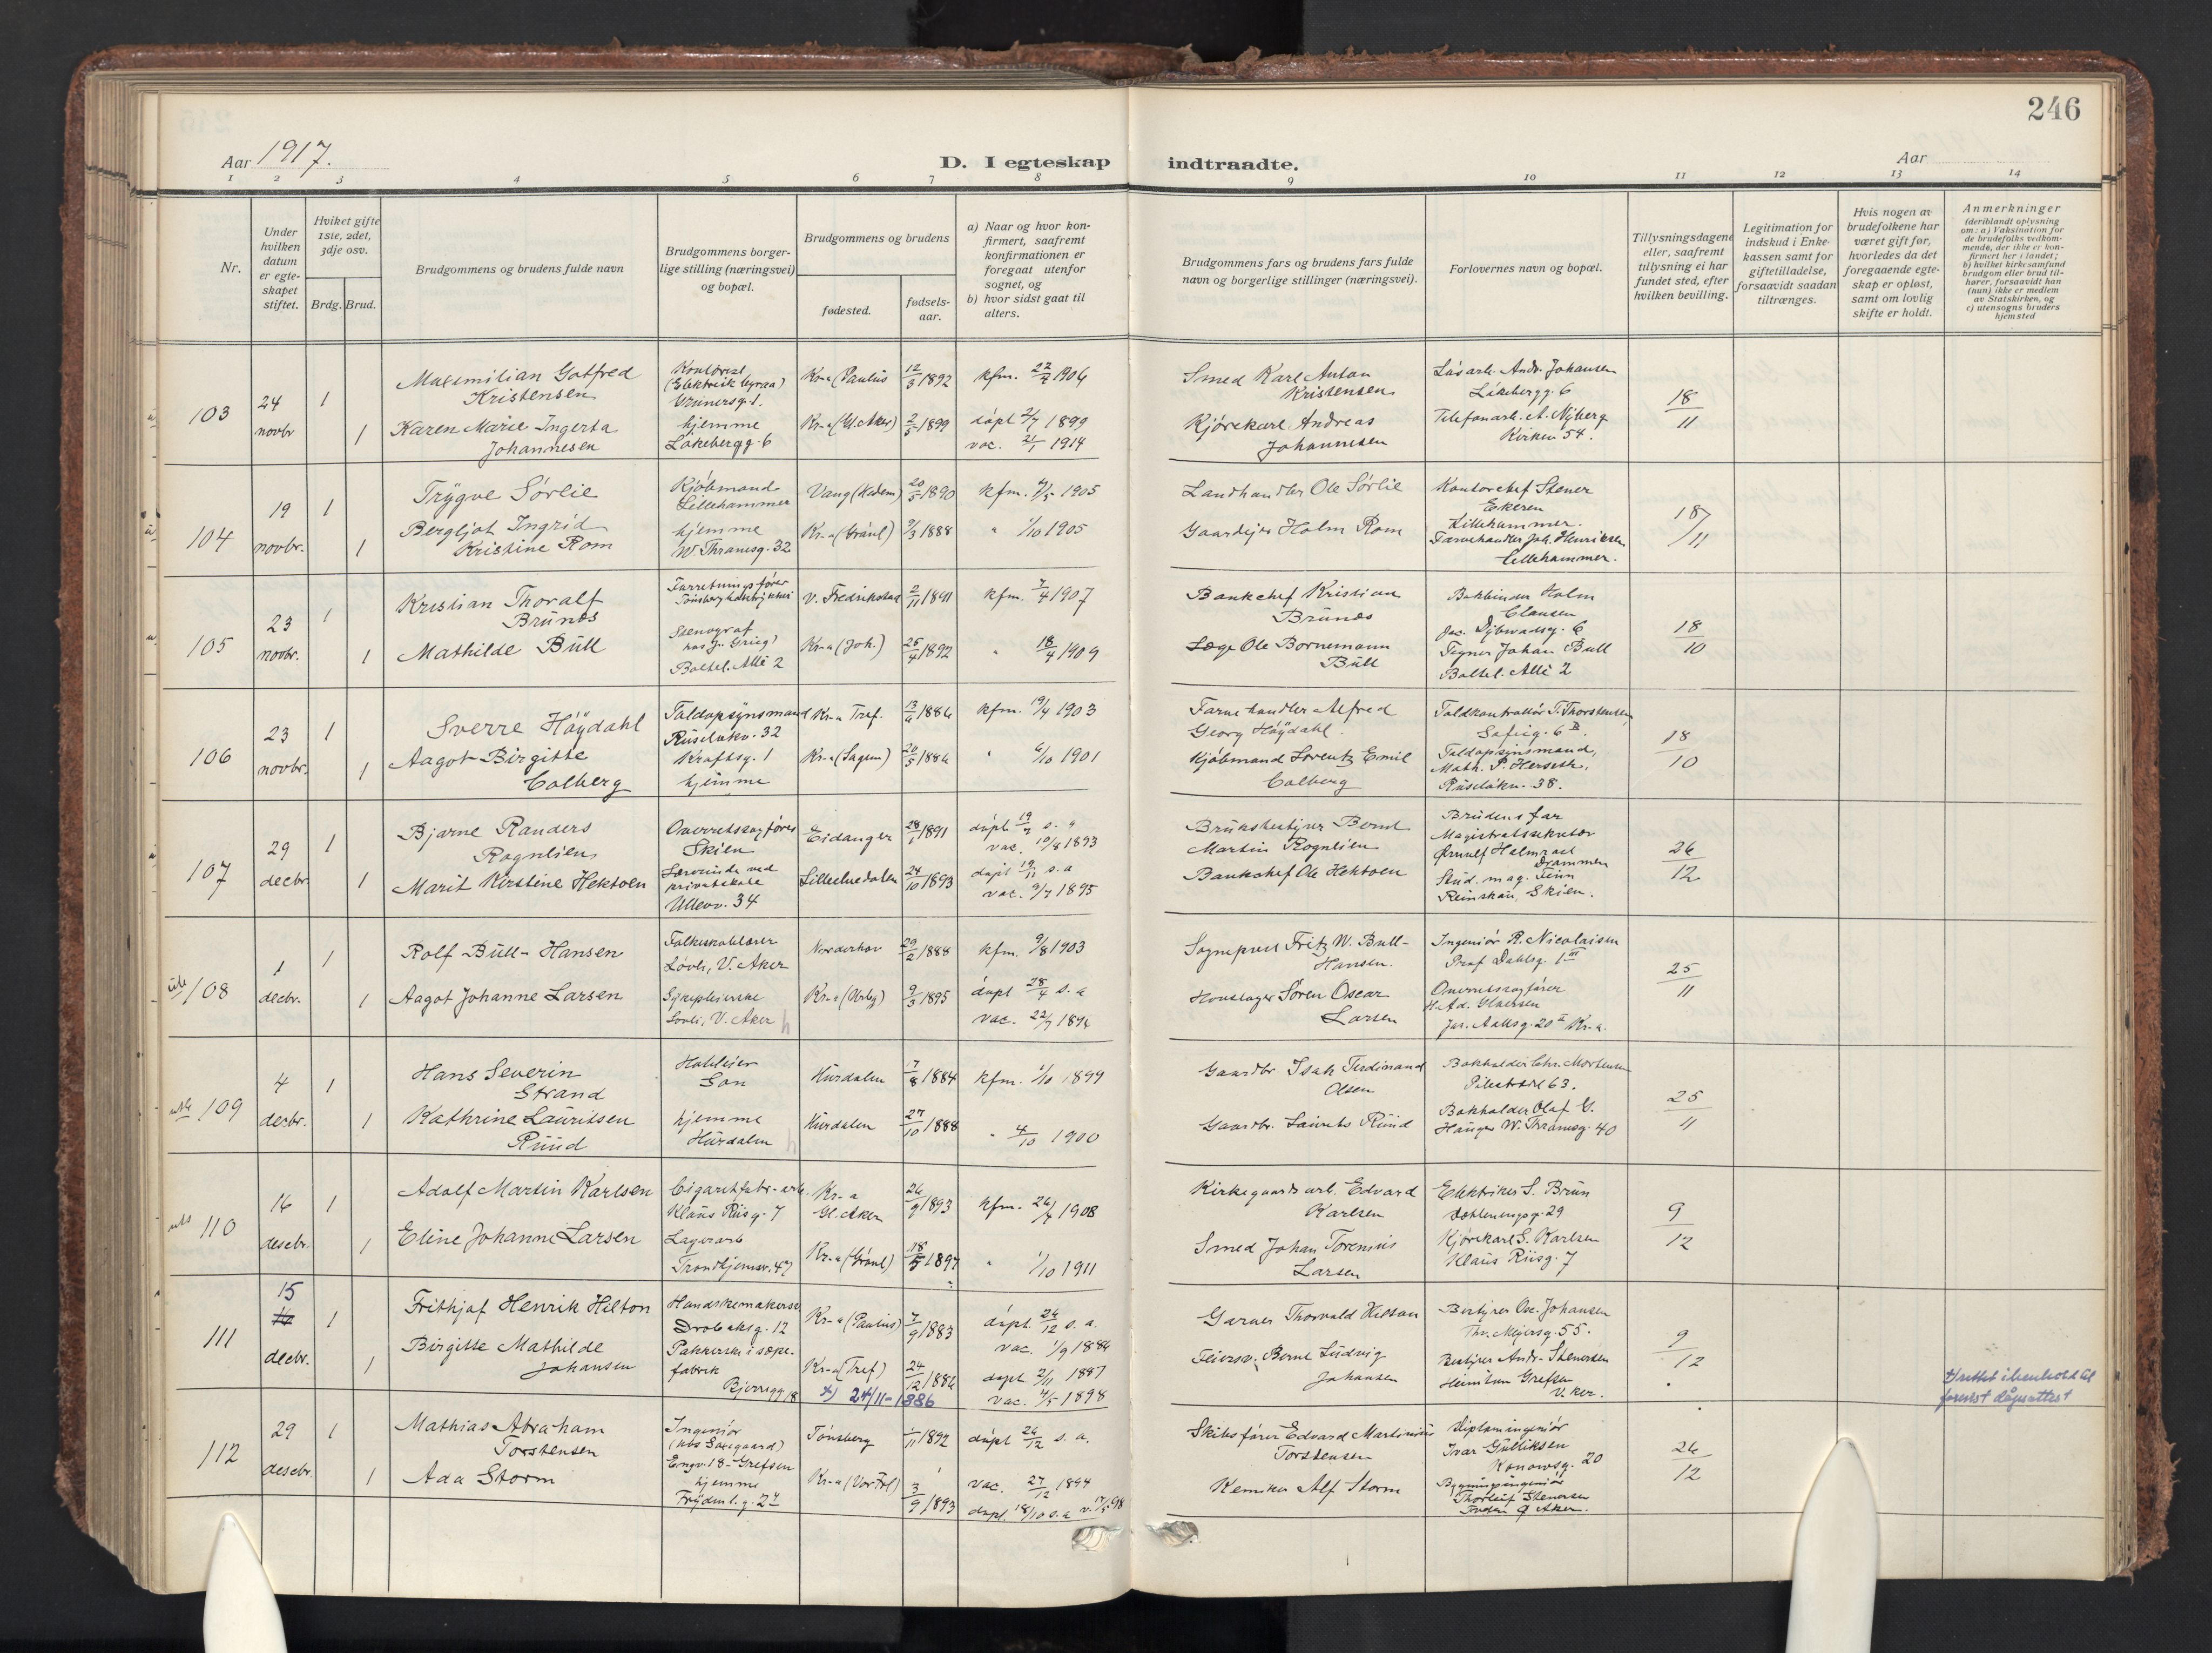 246
Aar 1917.
D. I egteskap indtraadte.
Aar
1 2 3 4 5 6 7 8 9 10 11 12 13 14
Nr.
Under hvilken datum er egteskapet stiftet.
Hvilket gifte 1ste, 2det, 3dje osv.
Brdg. Brud.
Brudgommens og brudens fulde navn
Brudgommens borgerlige stilling (næringsvei) og bopæl.
Brudgommens og brudens
fødested.
fødselsaar.
a) Naar og hvor konfirmert, saafremt konfirmationen er foregaat utenfor sognet, og
b) hvor sidst gaat til alters.
Brudgommens fars og brudens fars fulde navn og borgerlige stillinger (næringsvei).
Forlovernes navn og bopæl.
Tillysningsdagene eller, saafremt tillysning ei har fundet sted, efter hvilken bevilling.
Legitimation for indskud i Enkekassen samt for giftetilladelse, forsaavidt saadan tiltrænges.
Hvis nogen av brudefolkene har været gift før, hvorledes da det foregaaende egteskap er opløst, samt om lovlig skifte er holdt.
Anmerkninger (deriblandt oplysning om: a) Vaksination for de brudefolks vedkommende, der ikke er konfirmert her i landet; b) hvilket kirkesamfund brudgom eller brud tilhører, forsaavidt han (hun) ikke er medlem av Statskirken, og c) utensogns bruders hjemsted
103 24 novbr 1 Maximilian Gotfred Kristensen Kontorist (Elektrisk byraa) Grünersg. 1. Kr-a (Paulus 12/3 1892 kfm. 1906 Smed Karl Anton Kristensen Andr. Johansen Lakebergg. 6 18/11
1 Karen Marie Ingerta Johannesen hjemme Lakebergg. 6 Kr-a (Gl. Aker) 2/5 1899 døpt 2/7 1899 vac. 1914 Kjørekarl Andreas Johannesen Telefonarb. A. Nyberg Kirkev 54.
104 19 novbr. 1 Trygve Sörlie Kjøbmand Lillehammer Vang (Hedem) 20/5 1890 kfm. 1905 Landhandler Ole Sörlie Kontorchef Stener Ekeren Lillehammer. 18/11
1 Bergljot Ingrid Kristine Rom hjemme W. Thranesg. 32 Kr-a (Grønl) 1888 " 1/10 1905 Gaardejer Holm Rom Farvehandler Joh. Henriksen Lillehammer.
105 23 novbr. 1 Kristian Thoralf Brünæs Forretningsfører v. Fredrikstad 2/11 1891 kfm. 7/4 1907 Bankchef Kristian Brünæs Bokbinder Holm Clausen Jac. Dybwadsg. 6 18/10
1 Mathilde Bull Stenograf hos J. Grieg) Boltel. Allé 2 Kr-a (Joh.) 25/4 1892 " 18/4 1909 Læge Ole Bornemann Bull Tegner Johan Bull Boltel. Allé 2
106 23 novbr. 1 Sverre Höydahl Toldopsynsmand Rüseløkv. 32 Kr-a Tref. 1886 kfm. 19/4 1903 Farvehandler Alfred Georg Höydahl. Toldkontrollør T. Thorstensen, Sofieg. 6 18/10
1 Aagot Birgitte Colberg Kraftsg. 1 hjemme Kr-a (Sagene) 20/5 1886 " 6/10 1901 Kjøbmand Lorentz Emil Colberg Toldopsynsmand, Math. P. Herseth, Rüseløkv. 38.
107 29 decbr 1 Bjarne Randers Rognlien Overretssagfører Skien Eidanger 1891 døpt s. a vac. 10/8 1893 Brüksbestyrer Bernt Martin Rognlien Brüdens far Magistratssekretær Ørnulf Holmraat Drammen 26/12
1 Marit Kirstine Hektoen Lærerinde ved privatskole Ullevv. 34 Lilleelvedalen 24/10 1893 døpt 19/11 s. a vac. 9/7 1895 Bankchef Ole Hektoen Stud. mag. Finn Reinskau, Skien.
108 1 decbr. 1 Rolf Bull-Hansen Folkeskolelærer Løvli, V. Aker Norderhov 29/2 1888 kfm. 9/8 1903 Sogneprest Fritz W. Bull-Hansen. Ingeniør R. Nicolaisen Prof Dahlsg. 1 III 25/11
1 Aagot Johanne Larsen Sykepleierske Lovli, V. Aker Kr-a (Uranb.) 9/3 1895 døpt 28/4 s. a vac. 22/7 1896 Hovslager Søren Oscar Larsen Overretssagfører Jac. Aallsg. 20 II Kr-a.
109 4 decbr. 1 Hans Severin Strand Hoteleier Son Hurdalen 7/8 1884 kfm. 1/10 1899 Gaardbr Isak Ferdinand Olsen Bokholder Chr. Mortensen Pilestræd 63. 25/11
1 Kathrine Lauritsen Rüüd hjemme Hurdalen Hurdalen 27/10 1888 " 4/10 1900 Gaardbr. Laurits Rüüd Bokholder Olaf G. Hauger W. Thranesg. 40
110 16 desebr. 1 Adolf Martin Karlsen Cigaretfabr-arb. Klaus Riisg. 7 Kr-a Gl. Aker 26/9 1893 kfm. 26/4 1908 Kirkegaards arb. Edvard Karlsen Elektriker S. Brun Dæhlenengsg. 29 9/12
1 Eline Johanne Larsen Lagerarb Trondhjemsv. 47 Kr-a (Grønl) 18/5 1897 " 1/10 1911 Smed Johan Torenius Larsen Kjørekarl S. Karlsen Klaus Riisg. 7
111 15 decbr. 1 Frithjof Henrik Hilton Handskemakersv Drøbaksg. 12 Kr-a (Paulus) 7/9 1883 døpt. 26/12 s. a. vac. 1/9 1884 Garver Thorvald Hilton Bestyrer Osc. Johansen Thv. Meyersg. 55. 9/12
1 Birgitte Mathilde Johansen Pakkerske i sæpefabrik Bjerregg 18 Kr-a (Tref) 24/12 1886 x) 24/11-1886 døpt 2/11 1887 vac. 4/5 1898 Feiersv. Bernt Ludvig Johansen Bestyrer Andr. Stenersen Grefsen V. Aker.
x) rettet i henhold til forevist dåpsattest
112 29 desebr. 1 Mathias Abraham Torstensen Ingeniør Engv. 18 - Grefsen Tønsberg 1/11 1892 døpt 26/12 s. a. vac. 27/12 1894 Skibsfører Edvard Martinius Torstensen Diplomingeniør Ivar Gulliksen Konowsg. 20 26/12
1 Ada Storm hjemme Frydenl. g. 2 Kr-a (Vor Frl) 3/9 1893 døpt. 18/10 s. a Kemiker Alf Storm Bygningsingeniør Thorleif Stenersen Aker.